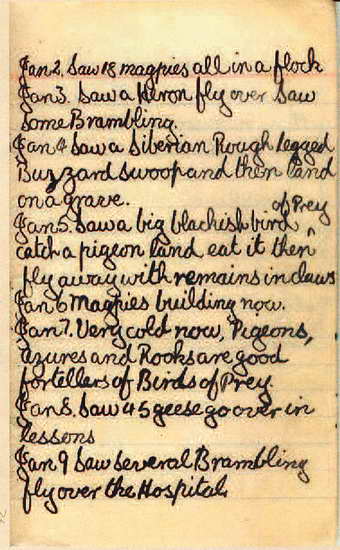 Jan 2. Saw 18 magpies all in a flock
Jan 3. Saw a Heron fly over Saw
Some Brambling.
Jan 4 Saw a Siberian Rough legged
Buzzard swoop and then land
on a grave.
Jan 5. Saw a big blackish bird ^ of Prey
catch a pigeon land eat it then
fly away with remains in claws
Jan 6 Magpies building now.
Jan 7. Very cold now, Pigeons,
azures and Rooks are good
fortellers of Birds of Prey.
Jan 8. Saw 45 geese go over in
lessons
Jan 9 Saw several Brambling
fly over the Hospital.